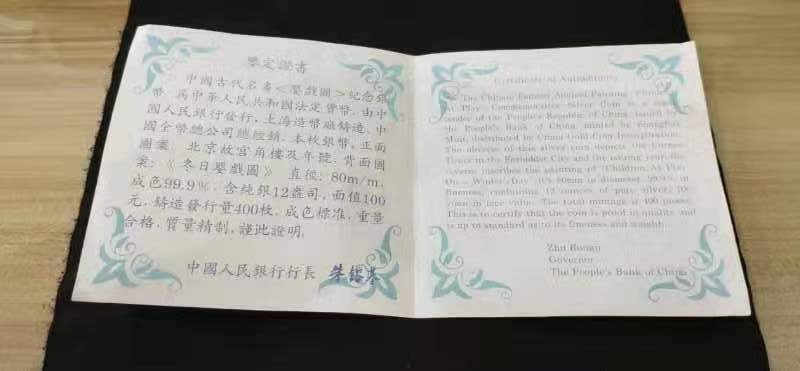 鑒定證書
中國古代名畫《嬰戲圖》紀念銀
幣 爲中華人民共和國法定貨幣. 由中
國人民銀行發行, 上海造幣廠鑄造, 中
國金幣總公司總經銷. 本枚銀幣, 正面
圖案: 北京故宮角樓及年號. 背面圖
案: 《冬日嬰戲圖》 直徑: 80m/m.
成色99.9% 含純銀12盎司, 面值100
元, 鑄造發行量400枚, 成色標准, 重量
合格, 質量精制, 謹此證明.
中國人民銀行行長 朱镕基
Certificate of Authenticity
The Chinese Famous Ancient Painting
At Play Commemorative Silver Coin is a
tender of the People's Republic of China, issued by
the People's Bank of China, minted by Shanghai
Mint, distributed by China Gold Coin Incorporation.
The obverse of this silver coin depicts the Corner
Tower in the Forbidden City and the issuing year, the
reverse the painting of "Children At Play
On a Winter Day".
fineness, containing 12 ounces of pure silver,
yuan in face value. The total mintage is 400 pieces.
This is to certify that the coin is proof in quality, and
is up to standard as to its fineness and weight.
Zhu Rongji
Governor
The People's Bank of China